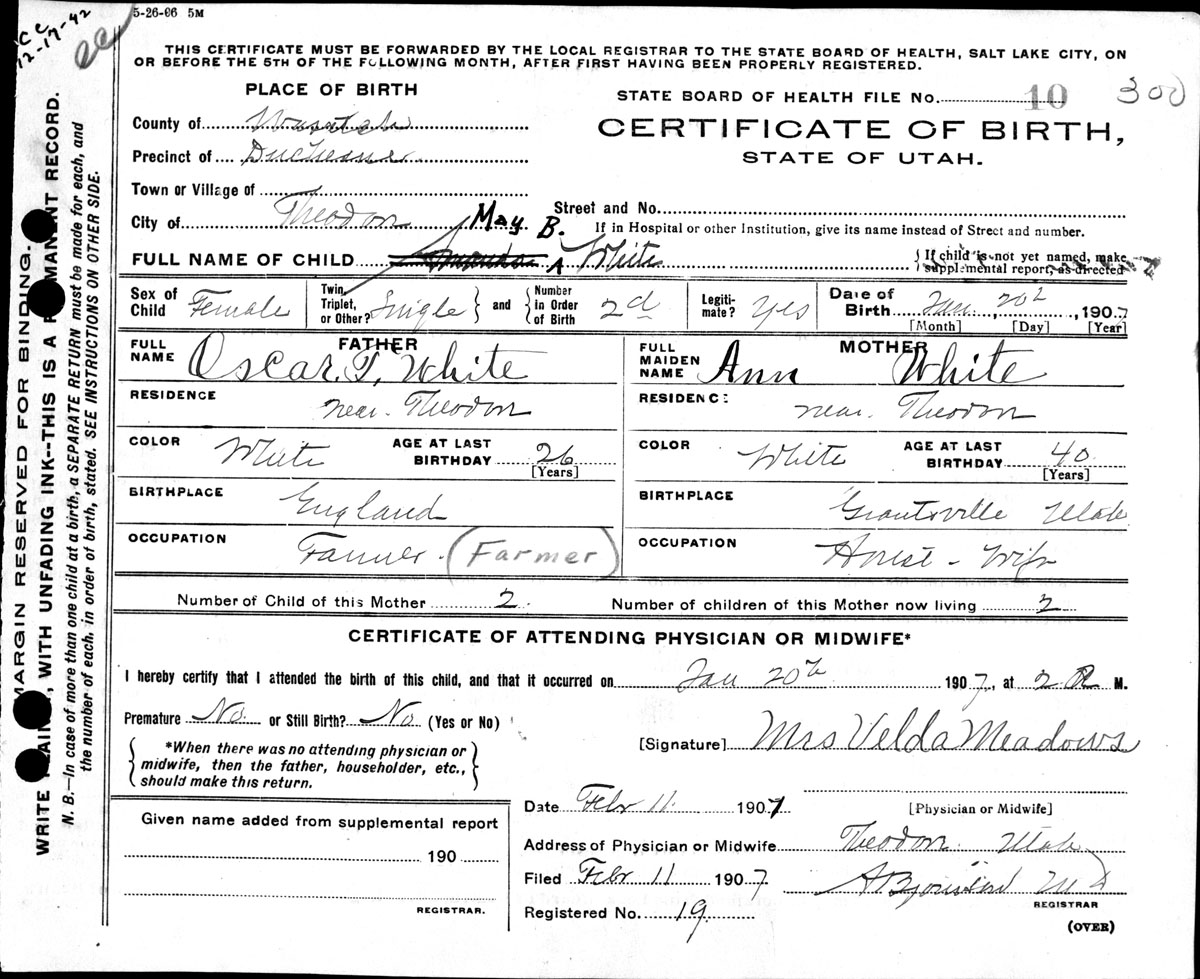 5-26-06 5M
CC
12-17-42
cc
THIS CERTIFICATE MUST BE FORWARDED BY THE LOCAL REGISTRAR TO THE STATE BOARD OF HEALTH, SALT LAKE CITY, ON
OR BEFORE THE 5TH OF THE FOLLOWING MONTH, AFTER FIRST HAVING BEEN PROPERLY REGISTERED.
PLACE OF BIRTH
STATE BOARD OF HEALTH FILE No. 10 300
County of Wasatch
CERTIFICATE OF BIRTH,
Precinct of Duchesne
STATE OF UTAH.
Town or Village of
Street and No.
City of Theodore
If in Hospital or other Institution, give its name instead of Street and number.
May B.
FULL NAME OF CHILD A White
If child is not yet named, make
supplemental report, as directed
Sex of Child Female
Twin, Triplet, or Other? Single and Number in Order of Birth 2d
Legiti-mate? Yes
Date of Birth Jan. 20th, 1907
[Month] [Day] [Year]
FATHER
FULL NAME Oscar. T. White
MOTHER
FULL MAIDEN NAME Ann White
RESIDENCE near. Theodore
RESIDENCE near. Theodore
COLOR White AGE AT LAST BIRTHDAY 26 [Years]
COLOR White AGE AT LAST BIRTHDAY 40 [Years]
BIRTHPLACE England
BIRTHPLACE Grantsville Utah
OCCUPATION Farmer. (Farmer)
OCCUPATION House-Wife
Number of Child of this Mother 2.
Number of children of this Mother now living 2
CERTIFICATE OF ATTENDING PHYSICIAN OR MIDWIFE*
I hereby certify that I attended the birth of this child, and that it occurred on Jan 20th 1907, at 2 M.
Premature No. or Still Birth? No (Yes or No)
*When there was no attending physician or
midwife, then the father, householder, etc.,
should make this return.
[Signature] Mrs Velda Meadows
[Physician or Midwife]
Date Febr 11. 1907
Address of Physician or Midwife Theodore Utah
Filed Febr 11 1907
REGISTRAR
Registered No. 19.
(OVER)
Given name added from supplemental report
190
REGISTRAR.
MARGIN RESERVED FOR BINDING.
WRITE PLAINLY, WITH UNFADING INK--THIS IS A PERMANENT RECORD.
N. B.—In case of more than one child at a birth, a SEPARATE RETURN must be made for each, and
the number of each, in order of birth, stated. SEE INSTRUCTIONS ON OTHER SIDE.